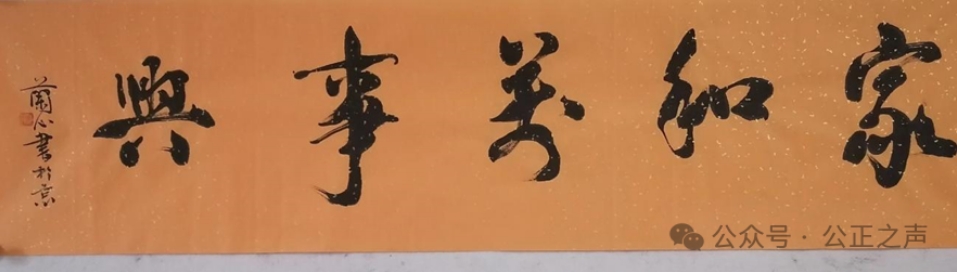 家和萬事興
蘭心書於京
公众号·公正之声